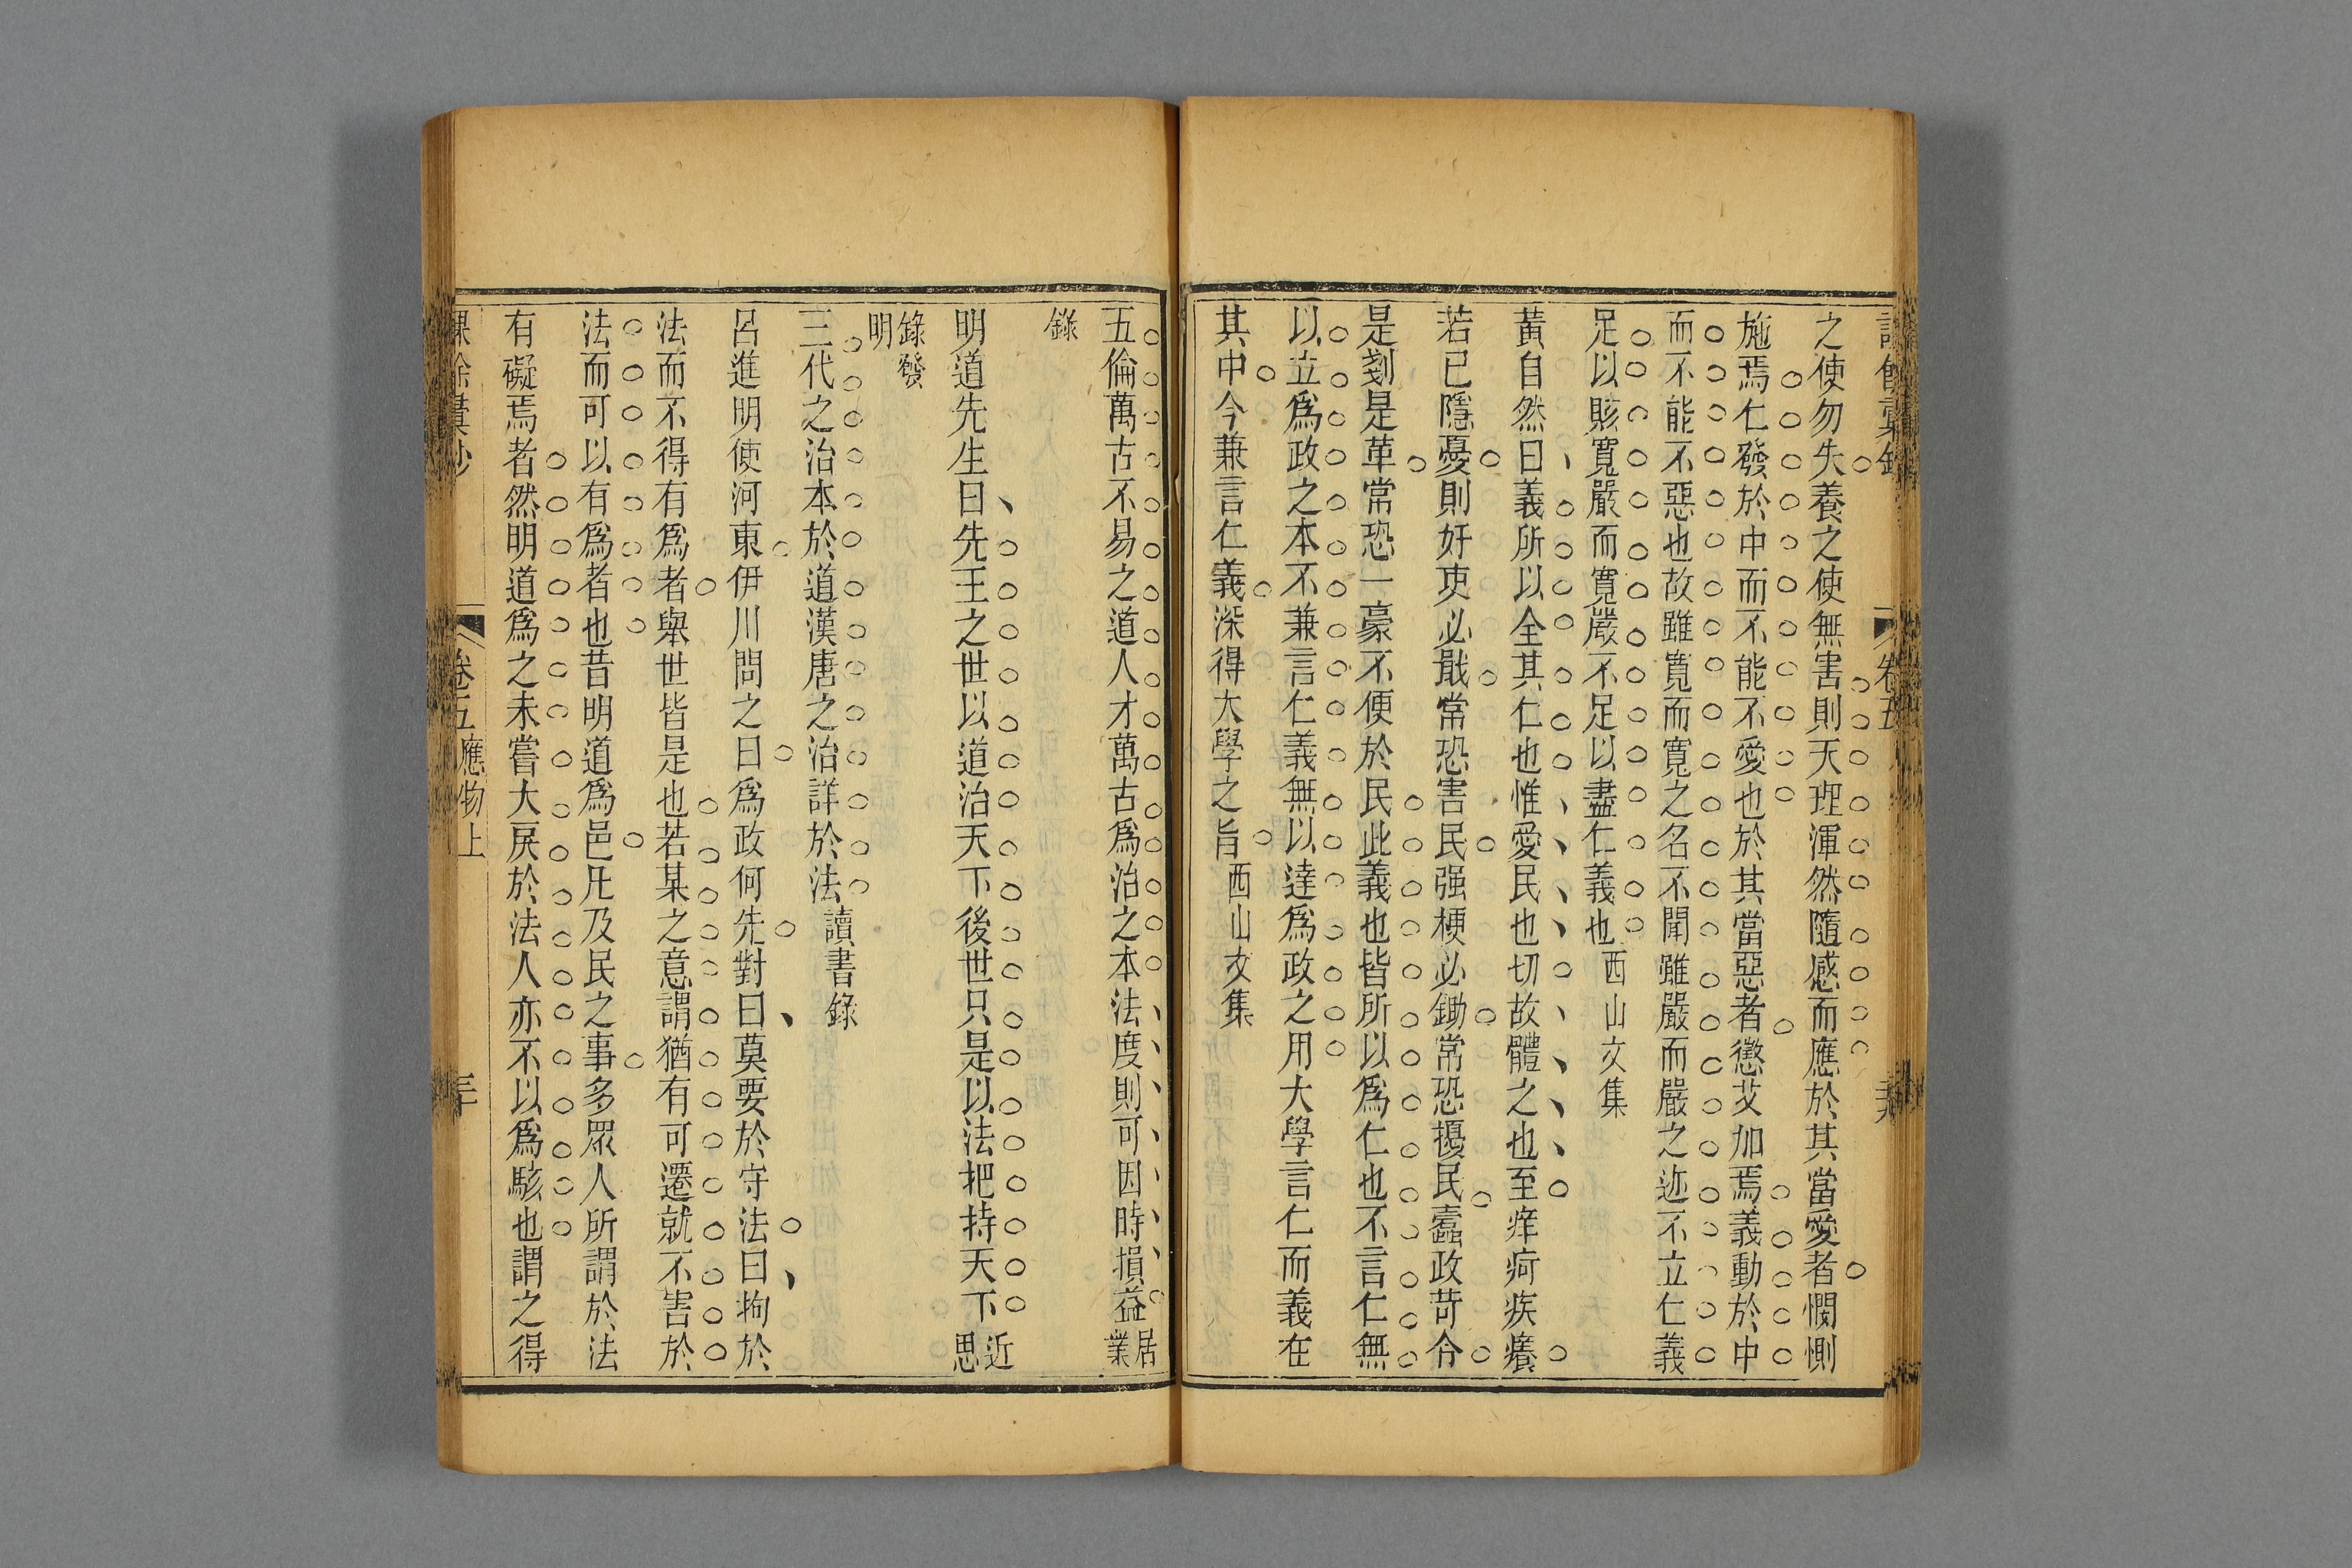 之使勿失養之使無害則天理渾然隨感而應於其當愛者憫惻
施焉仁發於中而不能不愛也於其當惡者懲艾加焉義動於中
而不能不惡也故雖寬而寬之名不聞雖嚴而嚴之迹不立仁義
足以賅寬嚴而寬嚴不足以盡仁義也西山文集
黃自然曰義所以全其仁也惟愛民也切故體之也至痒疴疾癢
若已隱憂則奸吏必戢常恐害民强梗必鋤常恐擾民蠹政苛令
是剗是革常恐一豪不便於民此義也皆所以爲仁也不言仁無
以立爲政之本不兼言仁義無以達爲政之用大學言仁而義在
其中今兼言仁義深得大學之旨西山文集
五倫萬古不易之道人才萬古爲治之本法度則可因時損益居業
錄
明道先生曰先王之世以道治天下後世只是以法把持天下近思
錄發明
三代之治本於道漢唐之治詳於法讀書錄
呂進明使河東伊川問之曰爲政何先對曰莫要於守法曰拘於
法而不得有爲者舉世皆是也若某之意謂猶有可遷就不害於
法而可以有爲者也昔明道爲邑凡及民之事多眾人所謂於法
有礙焉者然明道爲之未嘗大戾於法人亦不以爲駭也謂之得
卷五應物上